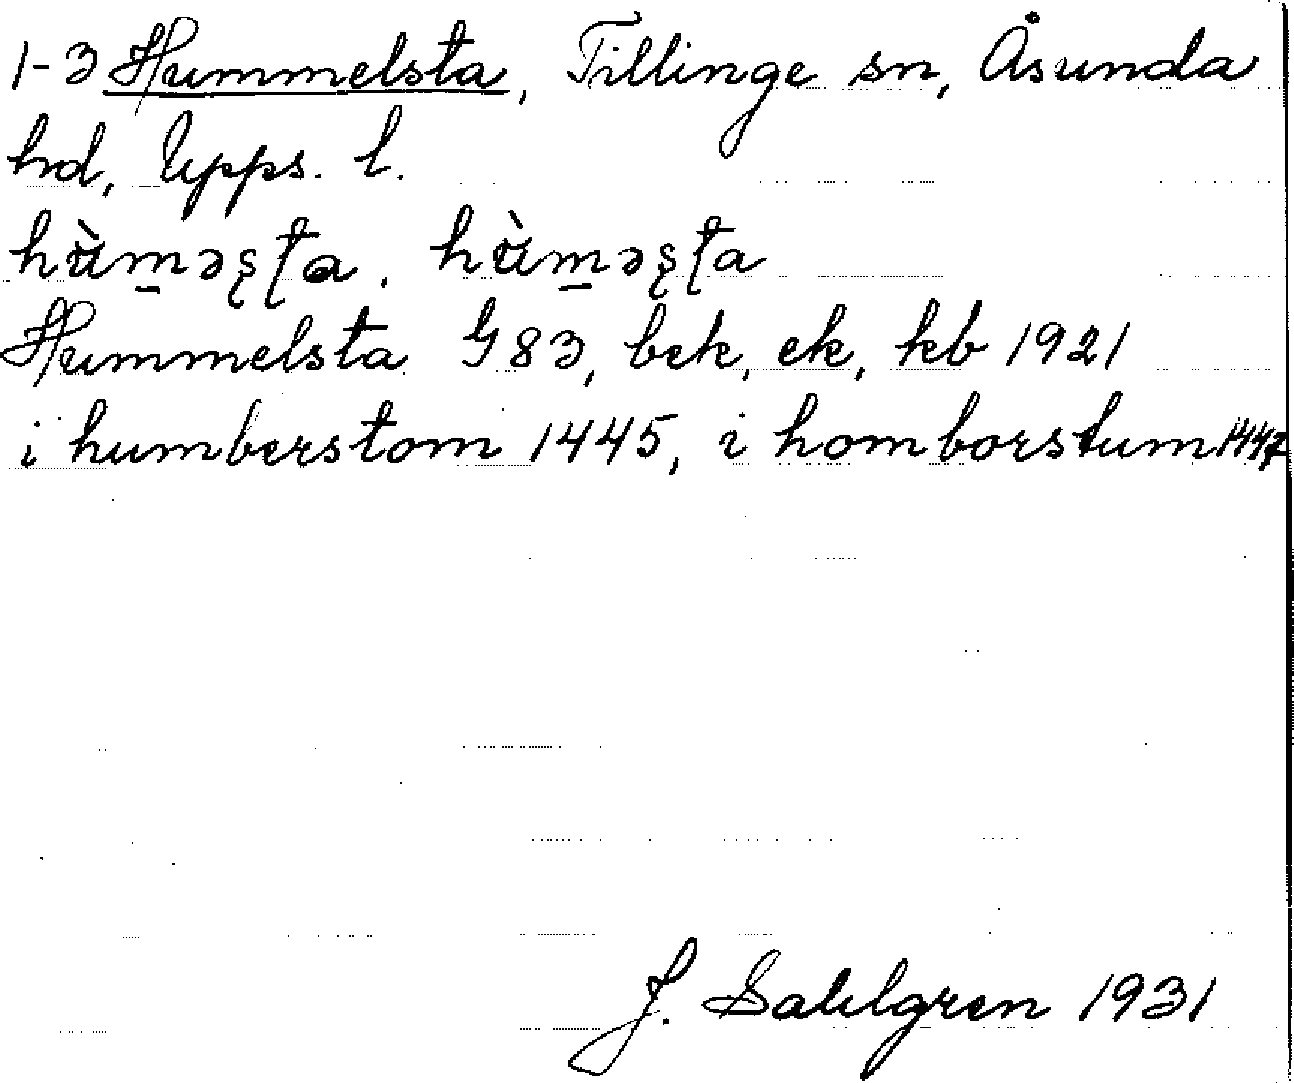 1-3 Hummelsta, Tillinge sn, Åsunda
hd, Upps. l.
hὰm̠əʂʈa, hὰm̠əʂʈa
Hummelsta G 83, bek, ek, kb 1921
i humberstom 1445, i homborstum 1447
J. Sahlgren 1931